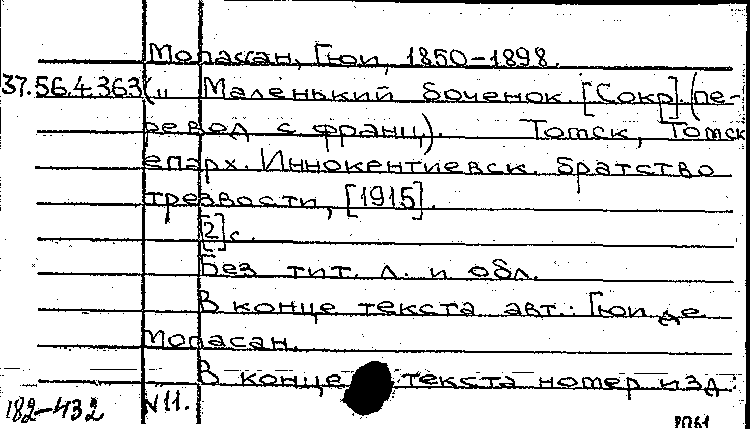 Мопассан, Гюи, 1850-1898.
37.56.4.363(,, Маленький боченок. [Сокр]. (пе-
ревод с франц). Томск, Томск
епарх. Иннокентиевск. братство
трезвости, [1915].
[2] с.
Без тит. л. и обл.
В конце текста авт.: Гюи де
Мопасан.
В конце текста номер изд.
182-432 N 11.